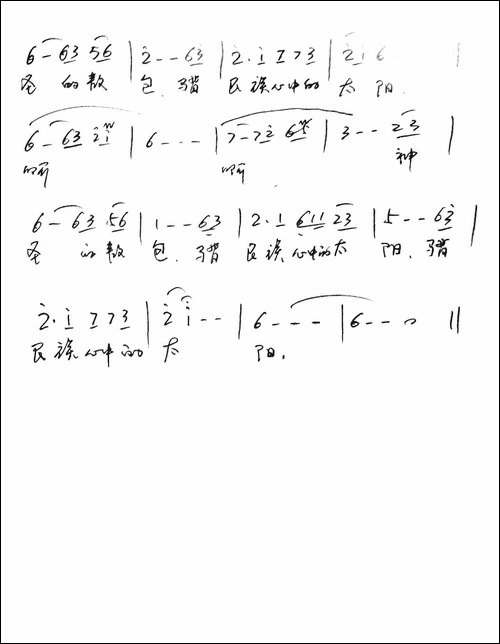 6 - 63 56 | 2 - - 63 | 2 · 1 7 7 3 | 2 1 6 |
圣 的敖 包. 民族心中的 太 阳.
6 - 63 21 | 6 - - - | 7 - 72 6 | 3 - - 23 |
啊 啊 神
6 - 63 56 | 1 - - 63 | 2 · 1 611 23 | 5 - - 63 |
圣 的敖 包. 民族心中的太 阳.
2 · 1 7 7 3 | 2 1 - - | 6 - - - | 6 - - 0 ||
民族心中的 太 阳.